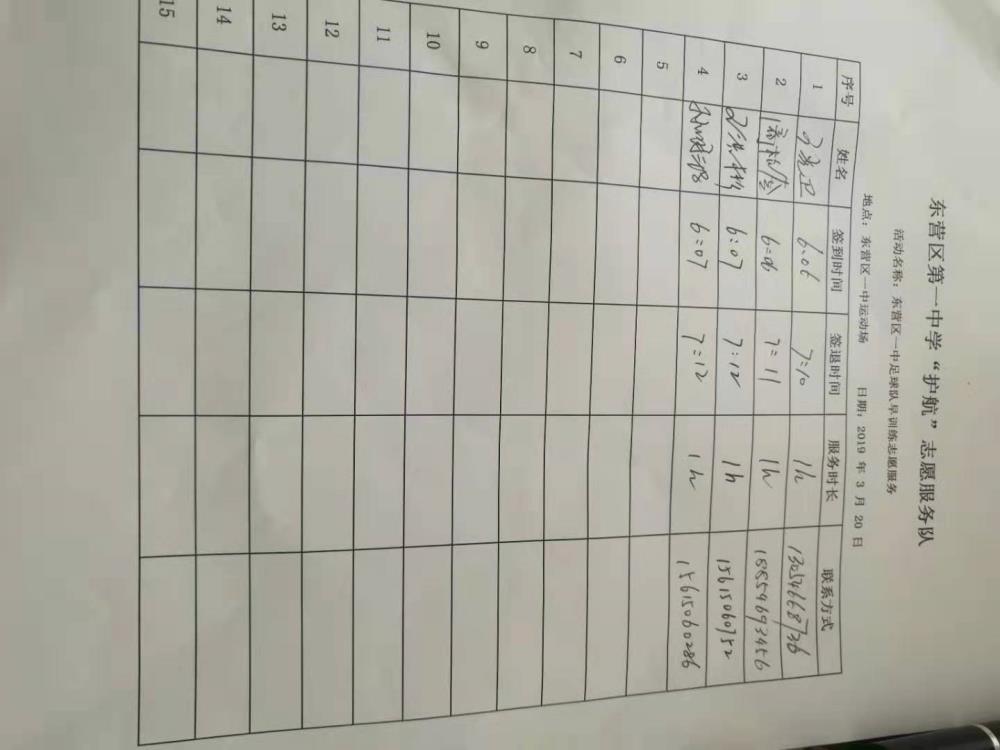 东营区第一中学“护航”志愿服务队
活动名称：东营区一中足球队早训练志愿服务
地点：东营区一中运动场 日期：2019 年 3 月 20 日
序号 姓名 签到时间 签退时间 服务时长 联系方式
1 6:06 7:10 1h 13054668736
2 6:06 7:11 1h 18854693456
3 6:07 7:12 1h 15615060752
4 6:07 7:12 1h 15615060286
5
6
7
8
9
10
11
12
13
14
15